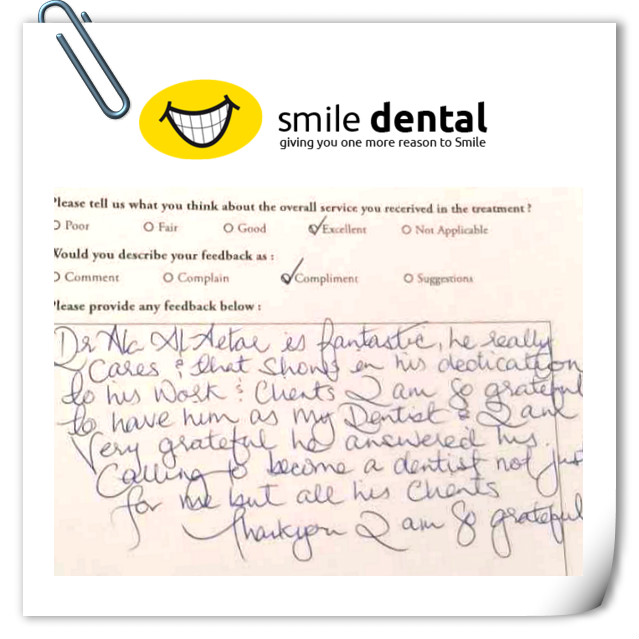 smile dental
giving you one more reason to Smile
lease tell us what you think about the overall service you recerived in the treatment ?
Poor Fair Good Excellent Not Applicable
Would you describe your feedback as :
Comment Complain Compliment Suggestions
lease provide any feedback below :
Dr Ala Al Aetar is fantastic, he really
Cares & that shows in his dedication
to his Work & Clients I am So grateful
to have him as my Dentist & I am
Very grateful he answered his
Calling to become a dentist not just
for me but all his Clients
Thankyou I am So grateful